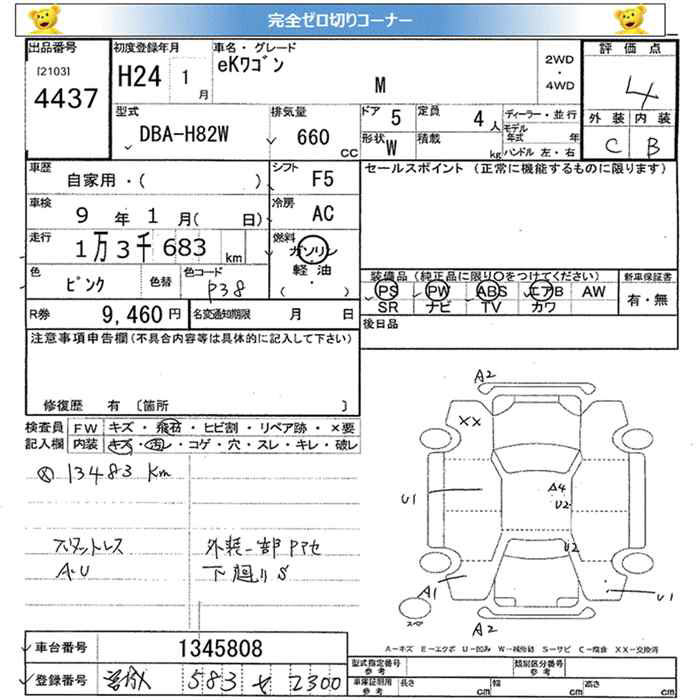 完全ゼロ切りコーナー
出品番号 初度登録年月 車名・グレード 評価点
[2103] H24 1月 eKワゴン 2WD・4WD 4
4437 M
外装 内装
C B
型式 排気量 ドア 5 定員 4人 ディーラー・並行
DBA-H82W 660CC モデル年式 年
形状 W 積載 kg ハンドル 左・右
車歴 シフト セールスポイント (正常に機能するものに限ります)
自家用・( ) F5
車検 9年1月( 日) 冷房 AC
走行 1万3千683km 燃料 ガソリン
軽油
・
( )
色 ピンク 色替 色コード P38
装備品(純正品に限り○をつけてください) 新車保証書
PS PW ABS エアB AW 有・無
SR ナビ TV カワ
R券 9,460円 名変通知期限 月 日 後日品
注意事項申告欄(不具合内容等は具体的に記入して下さい)
修復歴 有 〔箇所 〕
検査員 FW キズ・飛石・ヒビ割・リペア跡・×要
記入欄 内装 キズ・汚レ・コゲ・穴・スレ・キレ・破レ
13483 Km
スタットレス 外装一部Pアセ
A-U 下廻りS
A2
XX
A4
U1 U2
U2
A1 U1
スペア
A2
A-キズ E-エクボ U-凹み W-補修跡 S-サビ C-腐食 XX-交換済
車台番号 1345808
登録番号 583 2300
型式指定番号 参考 類別区分番号 参考
車庫証明用 参考 長さ cm 幅 cm 高さ cm